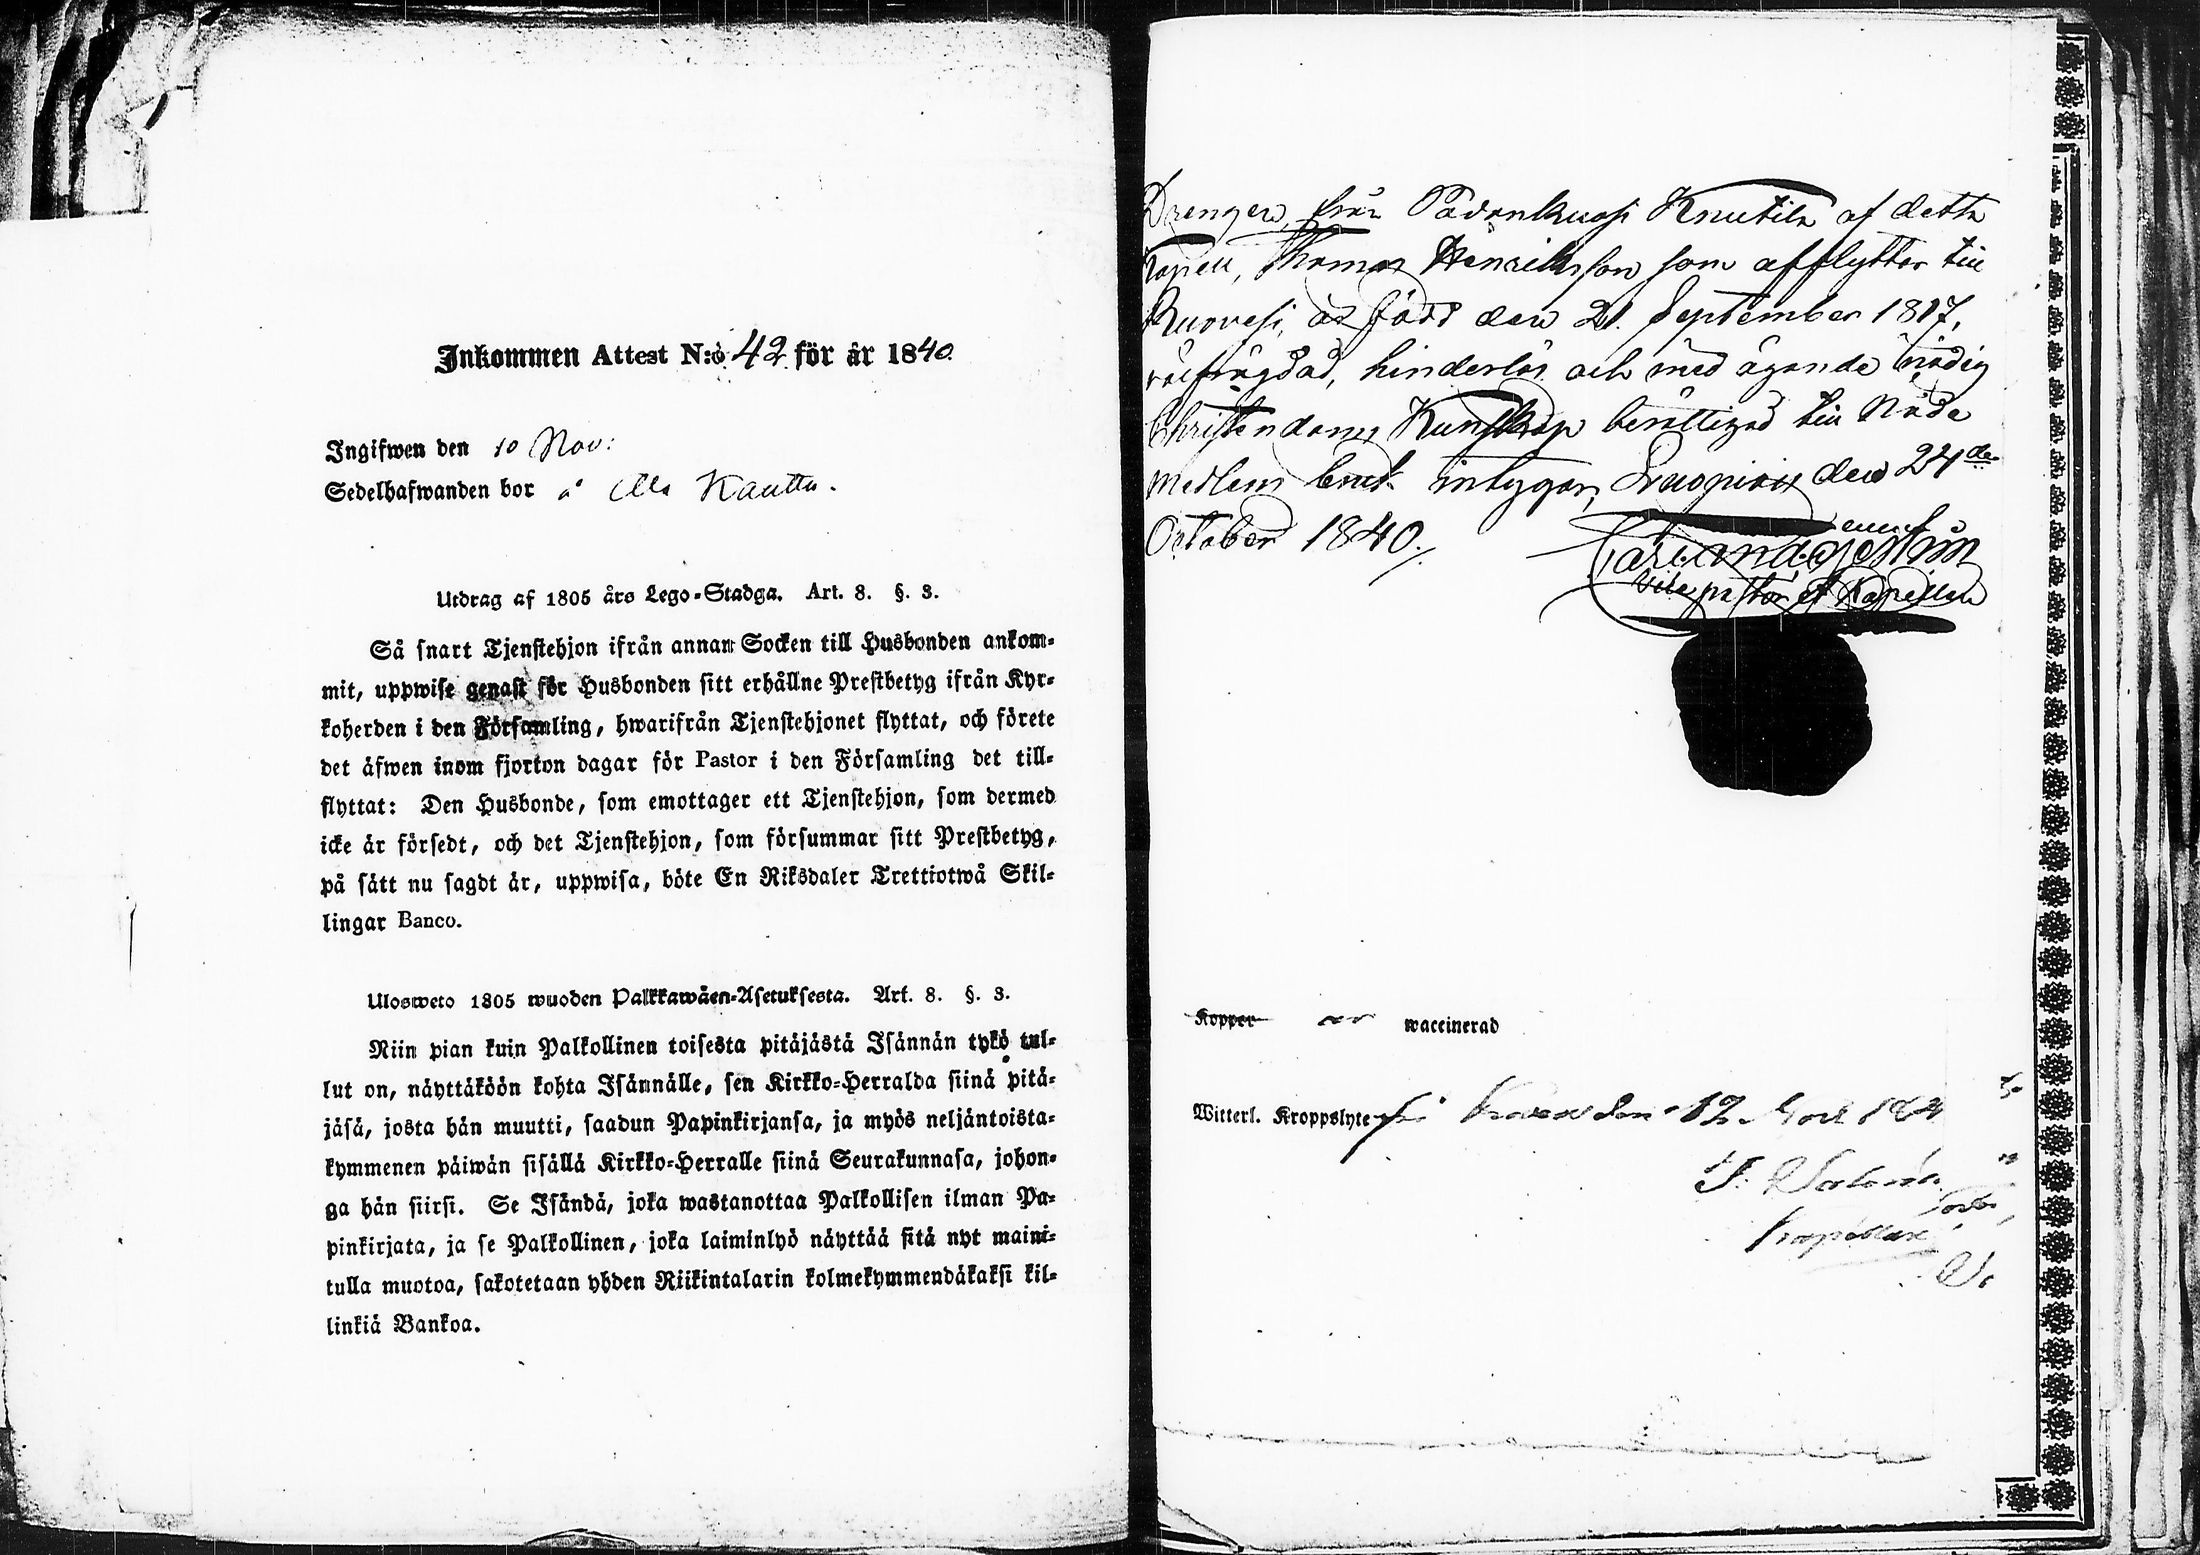 Inkommen Attest N:o 42 för år 1840.
Ingifwen den 10 Nov:
Sedelhafwanden bor å Kautta.
Utdrag af 1805 års Lego-Stadga. Art. 8. §. 3.
Så snart Tjenstehjon ifrån annan Socken till Husbonden ankom-
mit, uppwise genast för Husbonden sitt erhållne Prestbetyg ifrån Kyr-
koherden i den Församling, hwarifrån Tjenstehjonet flyttat, och förete
det äfwen inom fjorton dagar för Pastor i den Församling det till-
flyttat: Den Husbonde, som emottager ett Tjenstehjon, som dermed
icke är försedt, och det Tjenstehjon, som försummar sitt Prestbetyg,
på sätt nu sagdt är, uppwisa, böte En Riksdaler Trettiotwå Skil-
lingar Banco.
Ulosweto 1805 wuoden Palkkawäen-Asetuksesta. Art. 8. §. 3.
Niin pian kuin Palkollinen toisesta pitäjästä Isännän tykö tul-
lut on, näyttäköön kohta Isännälle, sen Kirkko-Herralda siinä pitä-
jäsä, josta hän muutti, saadun Papinkirjansa, ja myös neljäntoista-
kymmenen päiwän sisällä Kirkko-Herralle siinä Seurakunnasa, johon-
ga hän siirsi. Se Isändä, joka wastanottaa Palkollisen ilman Pa-
pinkirjata, ja se Palkollinen, joka laiminlyö näyttää sitä nyt maini-
tulla muotoa, sakotetaan yhden Riikintalarin kolmekymmendäkaksi kil-
linkiä Bankoa.
Drengen från Knutila af detta
Kapell, Thomas Henriksson som afflyttar till
Ruovesi, är född den 21. September 1817,
välfrägdad, hinderlös och med ägande nödig
Christendoms Kunskap berättigad till Nåde
medlens bruk intygar, den 24de
October 1840.
Vice pastor et Kapellan
Kopper är waccinerad
Witterl. Kroppslyte fri den 12